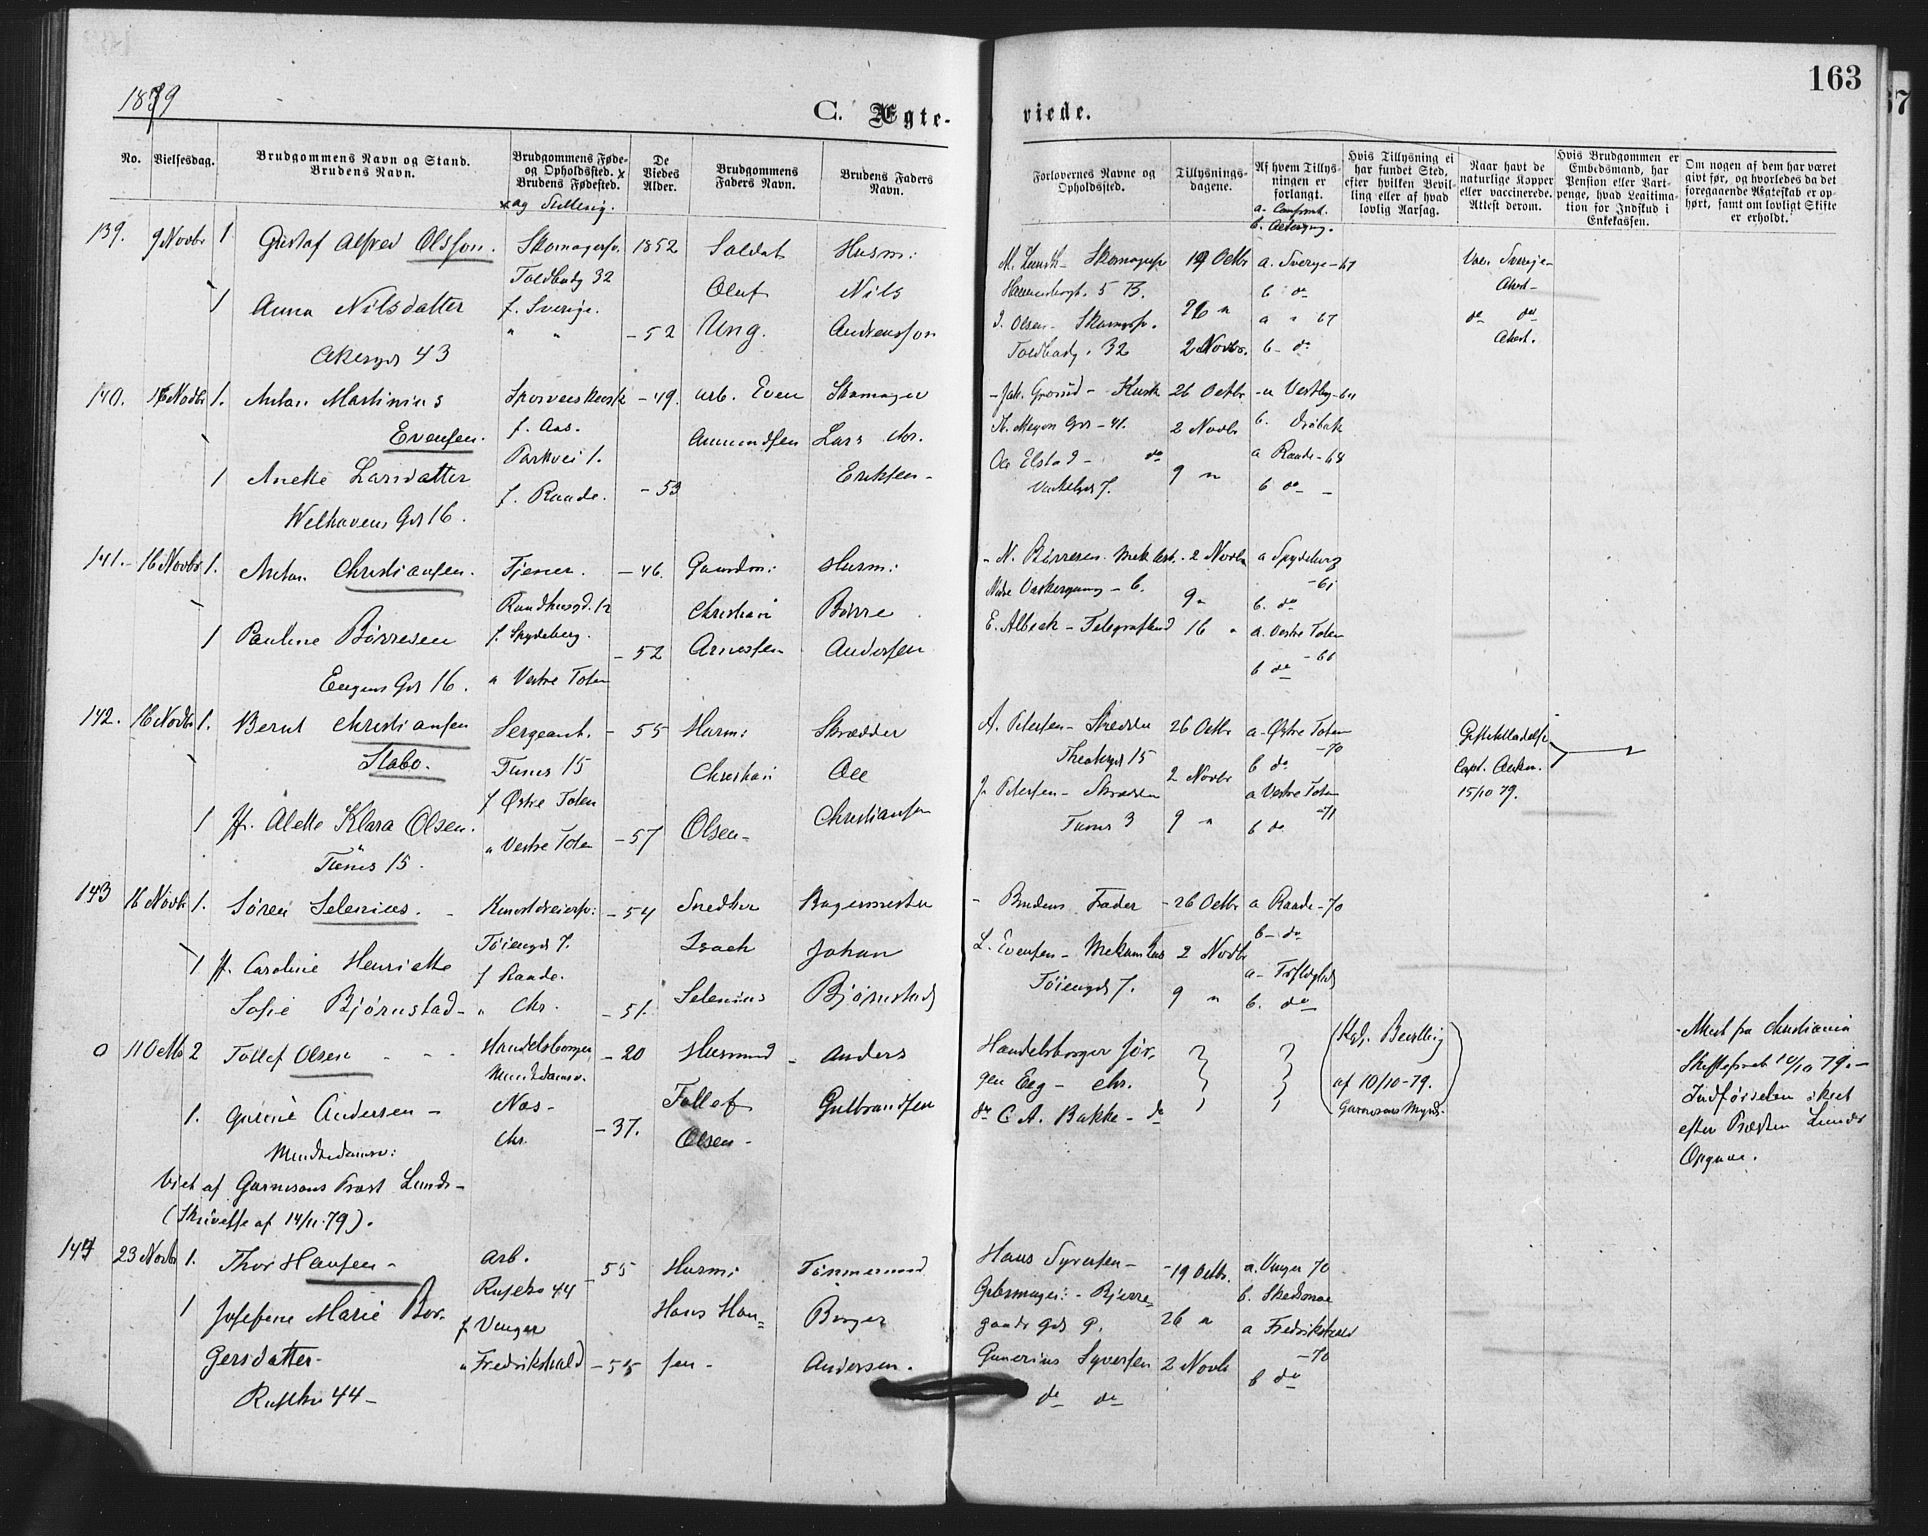 163
1879
C. Ægte-
viede.
No.
Vielsesdag.
Brudgommens Navn og Stand.
Brudens Navn.
Brudgommens Føde-
og Opholdssted. x
Brudens Fødested.
x og Stilling.
De
Viedes
Alder.
Brudgommens
Faders Navn.
Brudens Faders
Navn.
Forlovernes Navne og
Opholdssted.
Tillysnings-
dagene.
Af hvem Tillys-
ningen er
forlangt.
a. Confirmt.
Hvis Tillysning ei
har fundet Sted,
efter hvilken Bevil-
ling eller af hvad
lovlig Aarsag.
Naar havt de
naturlige Kopper
eller vaccinerede.
Attest derom.
Hvis Brudgommen er
Embedsmand, har
Pension eller Vart-
penge, hvad Legitima-
tion for Indskud i
Enkekassen.
Om nogen af dem har været
givt før, og hvorledes da det
foregaaende Ægteskab er op-
hørt, samt om lovligt Skifte
er erholdt.
139. 9 Novbr 1 Gustaf Alfred Olsson. Skomagersv. 1852 Soldat Husm:
Toldbodg 32 Oluf Nils
1 Anna Nilsdatter f. Sverige.
" " - 52 Ung. Andreasson
Akersgd 43
M. Lunde - Skomagersv 19 Octbr a. Sverge - 67 Vac. Sverige -
5 B. b do Attest -
J. Olsen - Skomgsv. 26 " a " 67 do do
Toldbodg. 32 2 Novbr. b - do Attest.
140. 16 Novbr 1. Anton Martinius - 49. Arb. Even Skomager
Evensen. f. Aas. Amundsen Lars Chr.
Parkvei 1.
1 Anette Larsdatter - 53 Eriksen -
f. Raade.
Welhavens Gd 16.
Kusk 26 Octbr - a Vestby - 64
2 Novbr b. Drøbak
Ole Elstad - do a Raade - 68
9 " b do -
141. - 16 Novbr 1. Anton Christiansen. Tjener. - 46. Gaardm: Husm:
Raadhusgd. 12 Christian Børre
1 Pauline Børresen f. Spydeberg.
- 52 Arnesen - Andersen
Eugens Gd 16. " Vestre Toten
- N. Børresen. Mek Arb. - 2 Novbr a Spydeberg
- 61
9 " b. do
E. Albeck - 16 " a. Vestre Toten
b do - 66
142. 16 Novbr 1. Bernt Christiansen Sergeant. - 55 Husm: Skrædder
Stabo. Tunes 15 Christian Ole
f Østre Toten
1 Jfr. Alette Klara Olsen. " Vestre Toten - 57 Olsen - Christiansen
Tunes 15.
A. Petersen - Skrædder 26 Octbr a - Østre Toten
Theatergd 15 - 70
2 Novbr b do
J. Petersen - Skrædder a Vestre Toten
Tunes 3 9 " b do - 71
Giftetilladelse
Capt.
15/10 79.
143 16 Novbr 1. Søren Selenius. - Kunstdreiersv: - 54 Snedker Bagermester
Tøiengd 7. Isach Johan
1 Jfr. Caroline Henriette f Raade.
Sofie Bjørnstad - " Chr. - 51. Selenius Bjørnstad
- Brudens Fader - 26 Octbr a Raade - 70
b - do
L. Evensen - 2 Novbr
Tøiengd 7. 9 " b. do
0 11 Octb 2 Tollef Olsen - - - Handelsborger - 20 Husmand - Anders
Munkedamsv.
1. Gurine Andersen - Næs - Tollef Gulbrandsen
Munkedamsv: Chr. - 37. Olsen -
Viet af Garnisons Præst Lunde -
(Skrivelse af 14/11 - 79).
Handelsborger Jør-
gen Eeg - Chr.
do C A. Bakke - do
(Kgl. Bevilling
af 10/10 - 79.
- Attest fra Christiania
Skifteret 10/10 79. -
Indførselen skeet
efter Præsten Lundes
Opgave.
144 23 Novbr 1. Thor Hansen - Arb. 55 Husm: Tømmermand
Ruseløk 44
1 Josefine Marie Bor- f Unger Hans Han= Borger
gersdatter - " Fredrikshald - 55 sen - Andersen.
Ruseløk 44 -
Hans Syversen - - 19 Octbr. a. Unger 70
b. Skedsmoe
gaards gd 9. 26 " a Fredrikshald
Gunerius Syversen 2 Novbr - 70
do do b do